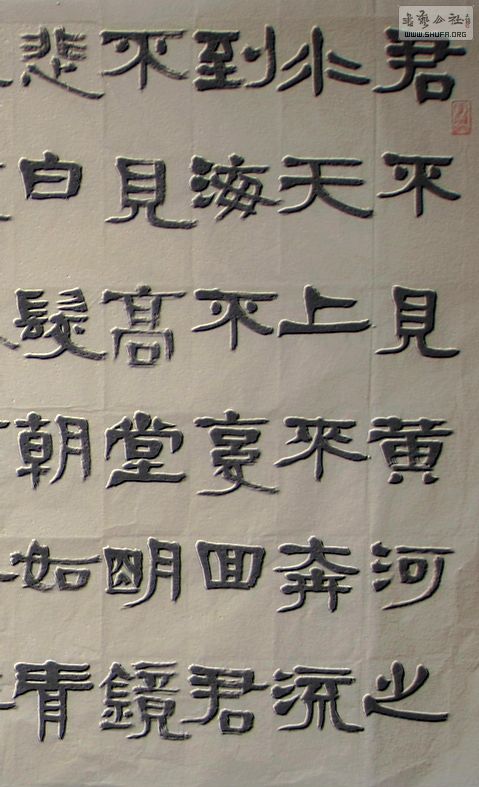 君不見黄河之
水天上來奔流
到海不复回君
不見高堂明鏡
悲白髮朝如青
書藝公社
WWW.SHUFA.ORG